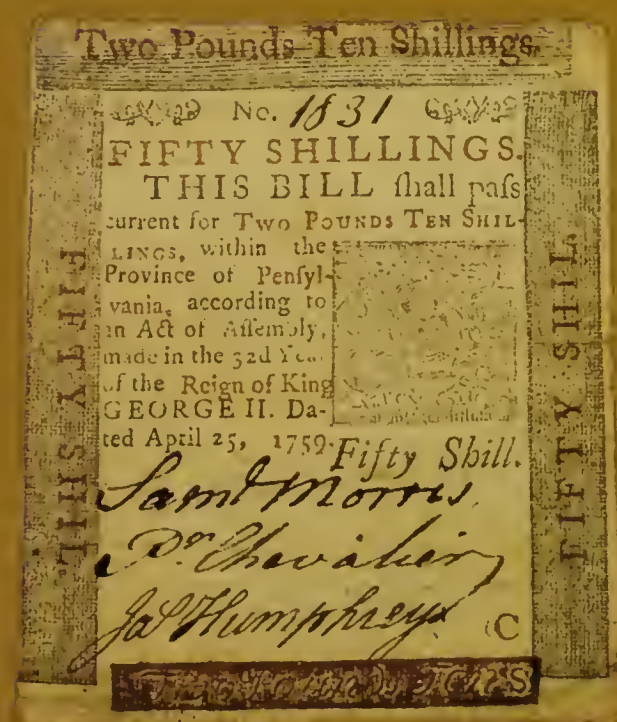 Two Pounds Ten Shillings.
No. 1831
FIFTY SHILLINGS.
THIS BILL ſhall paſs
current for TWO POUNDS TEN SHIL-
LINGS, within the
Province of Penſyl-
vania, according to
an Act of Aſſembly,
made in the 32d Year
of the Reign of King
GEORGE II. Da-
ted April 25, 1759.
Fifty Shill.
Saml Morris
Pr. Chevalier
Jas Humphreys
C
FIFTY SHIL.